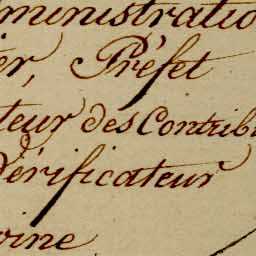 ministratio
er, Préfet
teur des Contrib
Vérificateur
oine